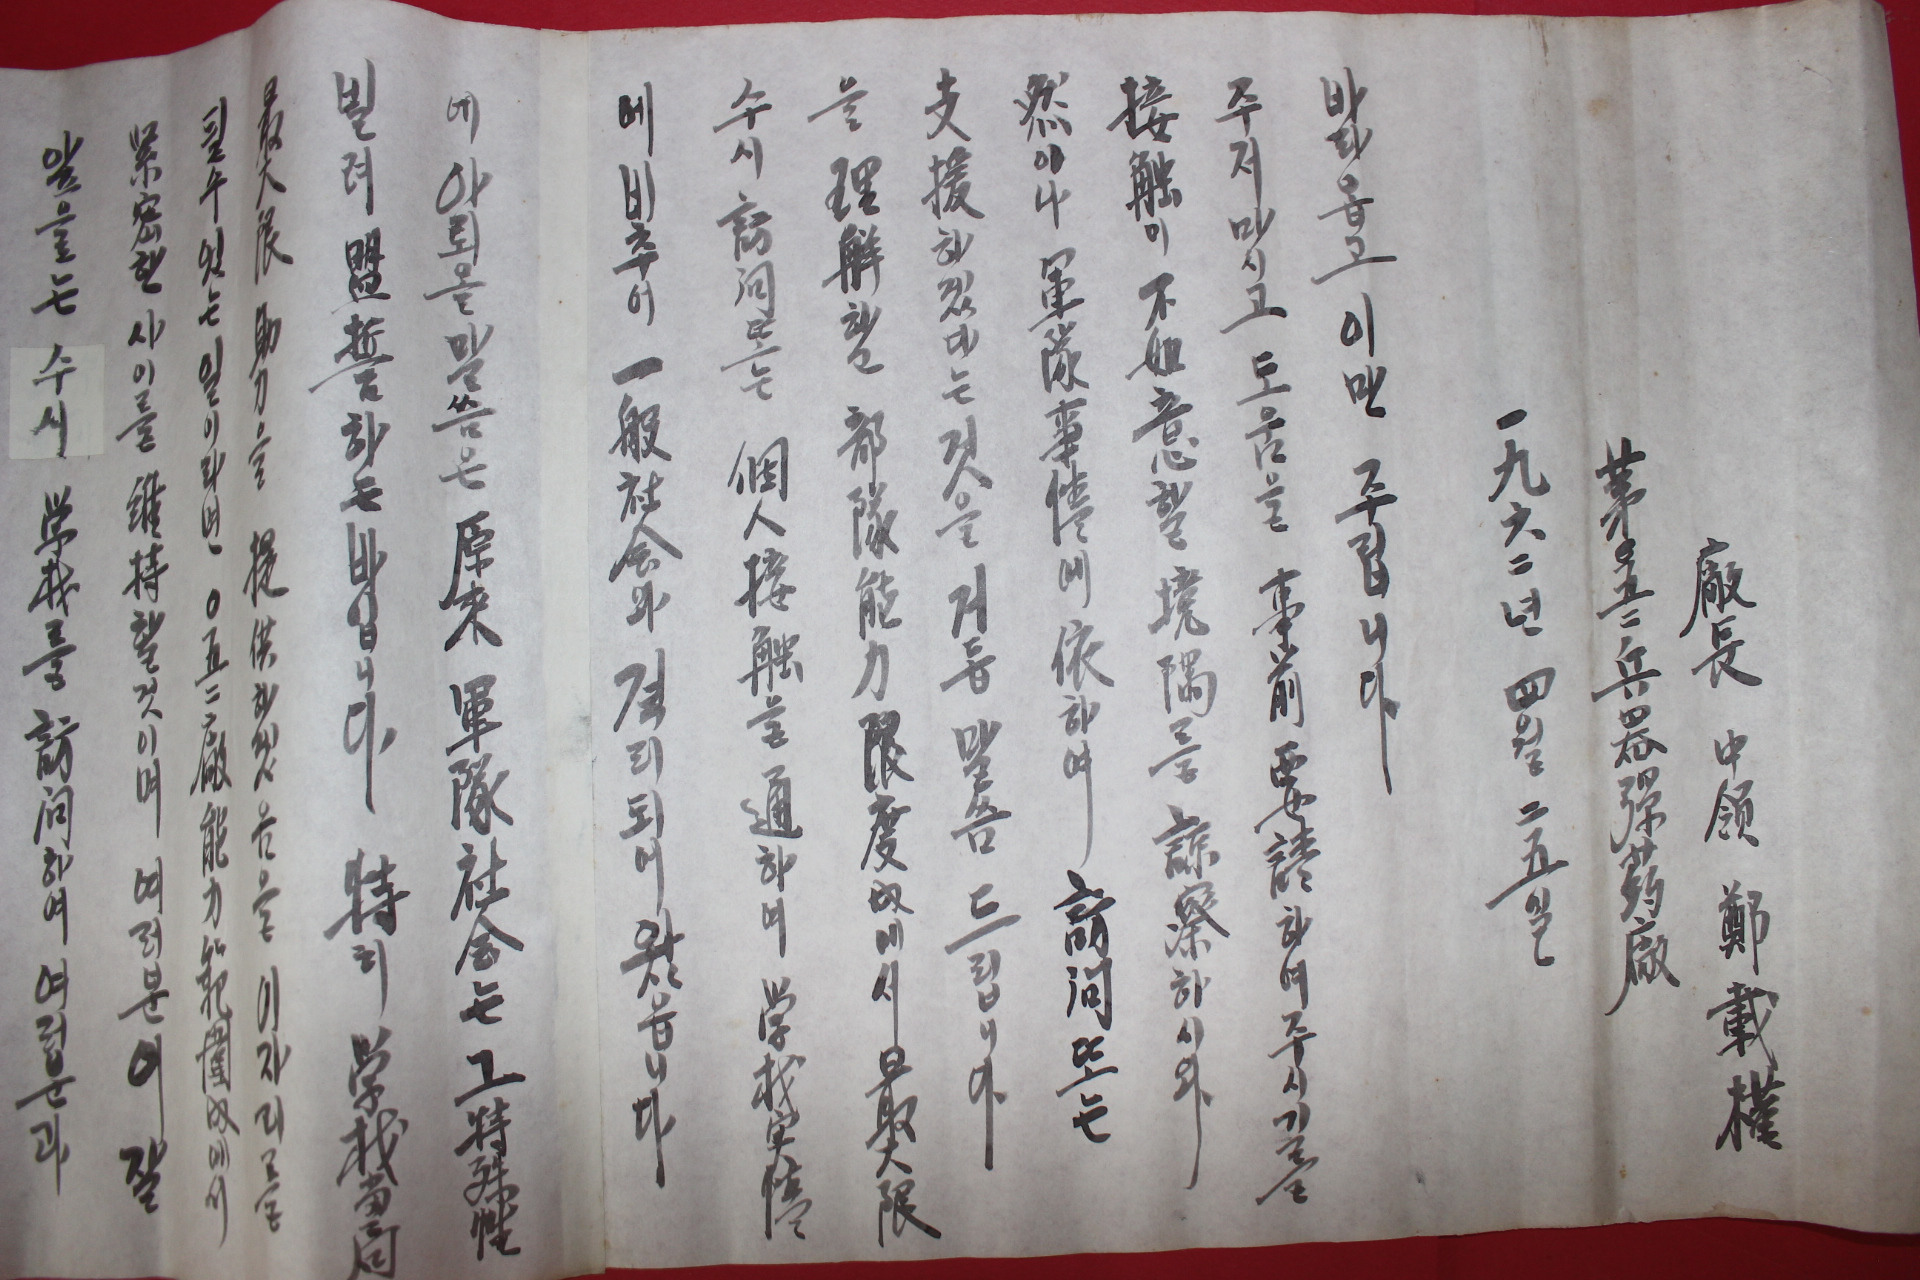 앞을로는 수시 学校를 訪問하여 여러분과
緊密한 사이를 維持할것이며 여러분이 잘
될수있는일이라면 0五二廠能力範圍內에서
最大限 助力을 提供하겠음을 이자리를
빌려 盟誓하는바입니다 特히 学校当局
에 아뢰올말씀은 原來 軍隊社会는 그特殊性
에비추어 一般社会와 격리되어 왔읍니다
수시 訪問또는 個人接触을 通하여 学校実情
을 理解할 部隊能力限度內에서 最大限
支援하겠다는것을 거듭 말씀 드립니다
然이나 軍隊事情에 依하여 訪問또는
接触이 不如意할 境隅를 諒察하시와
주저마시고 도움을 事前要請하여주시기를
바라옵고 이만 주립니다
一九六二년 四월 二五일
第0五二兵器彈药廠
廠長 中領 鄭載